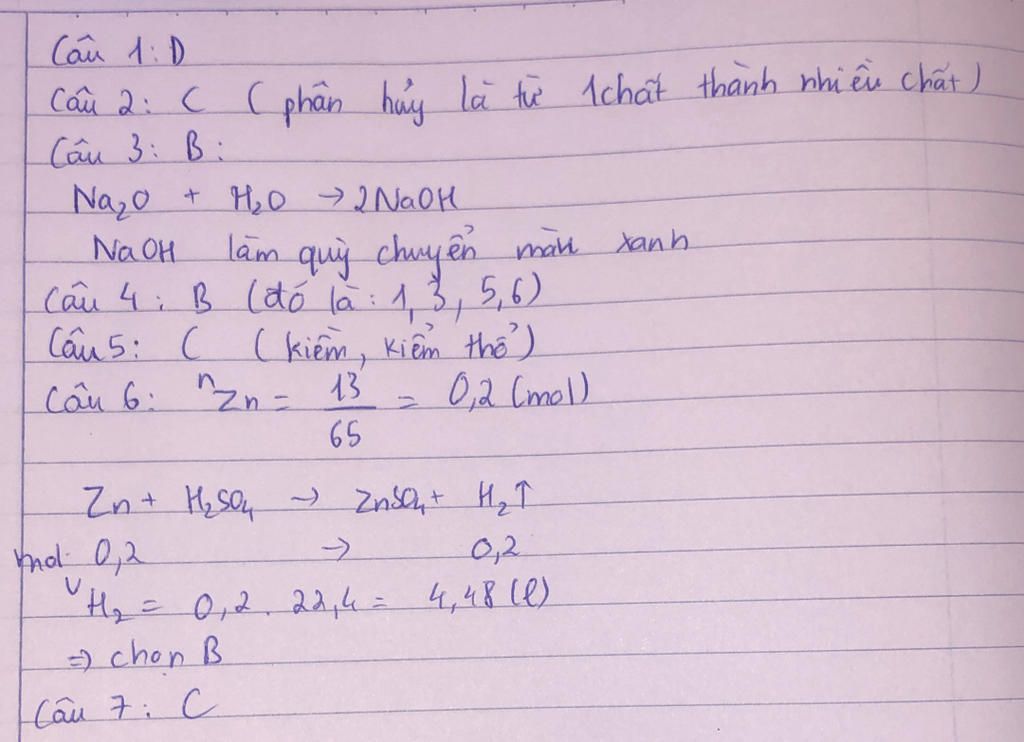 Câu 1: D
Câu 2: C (phân hủy là từ 1 chất thành nhiều chất)
Câu 3: B:
Na₂O + H₂O → 2NaOH
NaOH làm quỳ chuyển màu xanh
Câu 4: B (đó là: 1, 3, 5, 6)
Câu 5: C (kiềm, kiềm thổ)
Câu 6: nZn = 13/65 = 0,2 (mol)
Zn + H₂SO₄ → ZnSO₄ + H₂↑
mol: 0,2 → 0,2
VH₂ = 0,2 . 22,4 = 4,48 (l)
=> chọn B
Câu 7: C